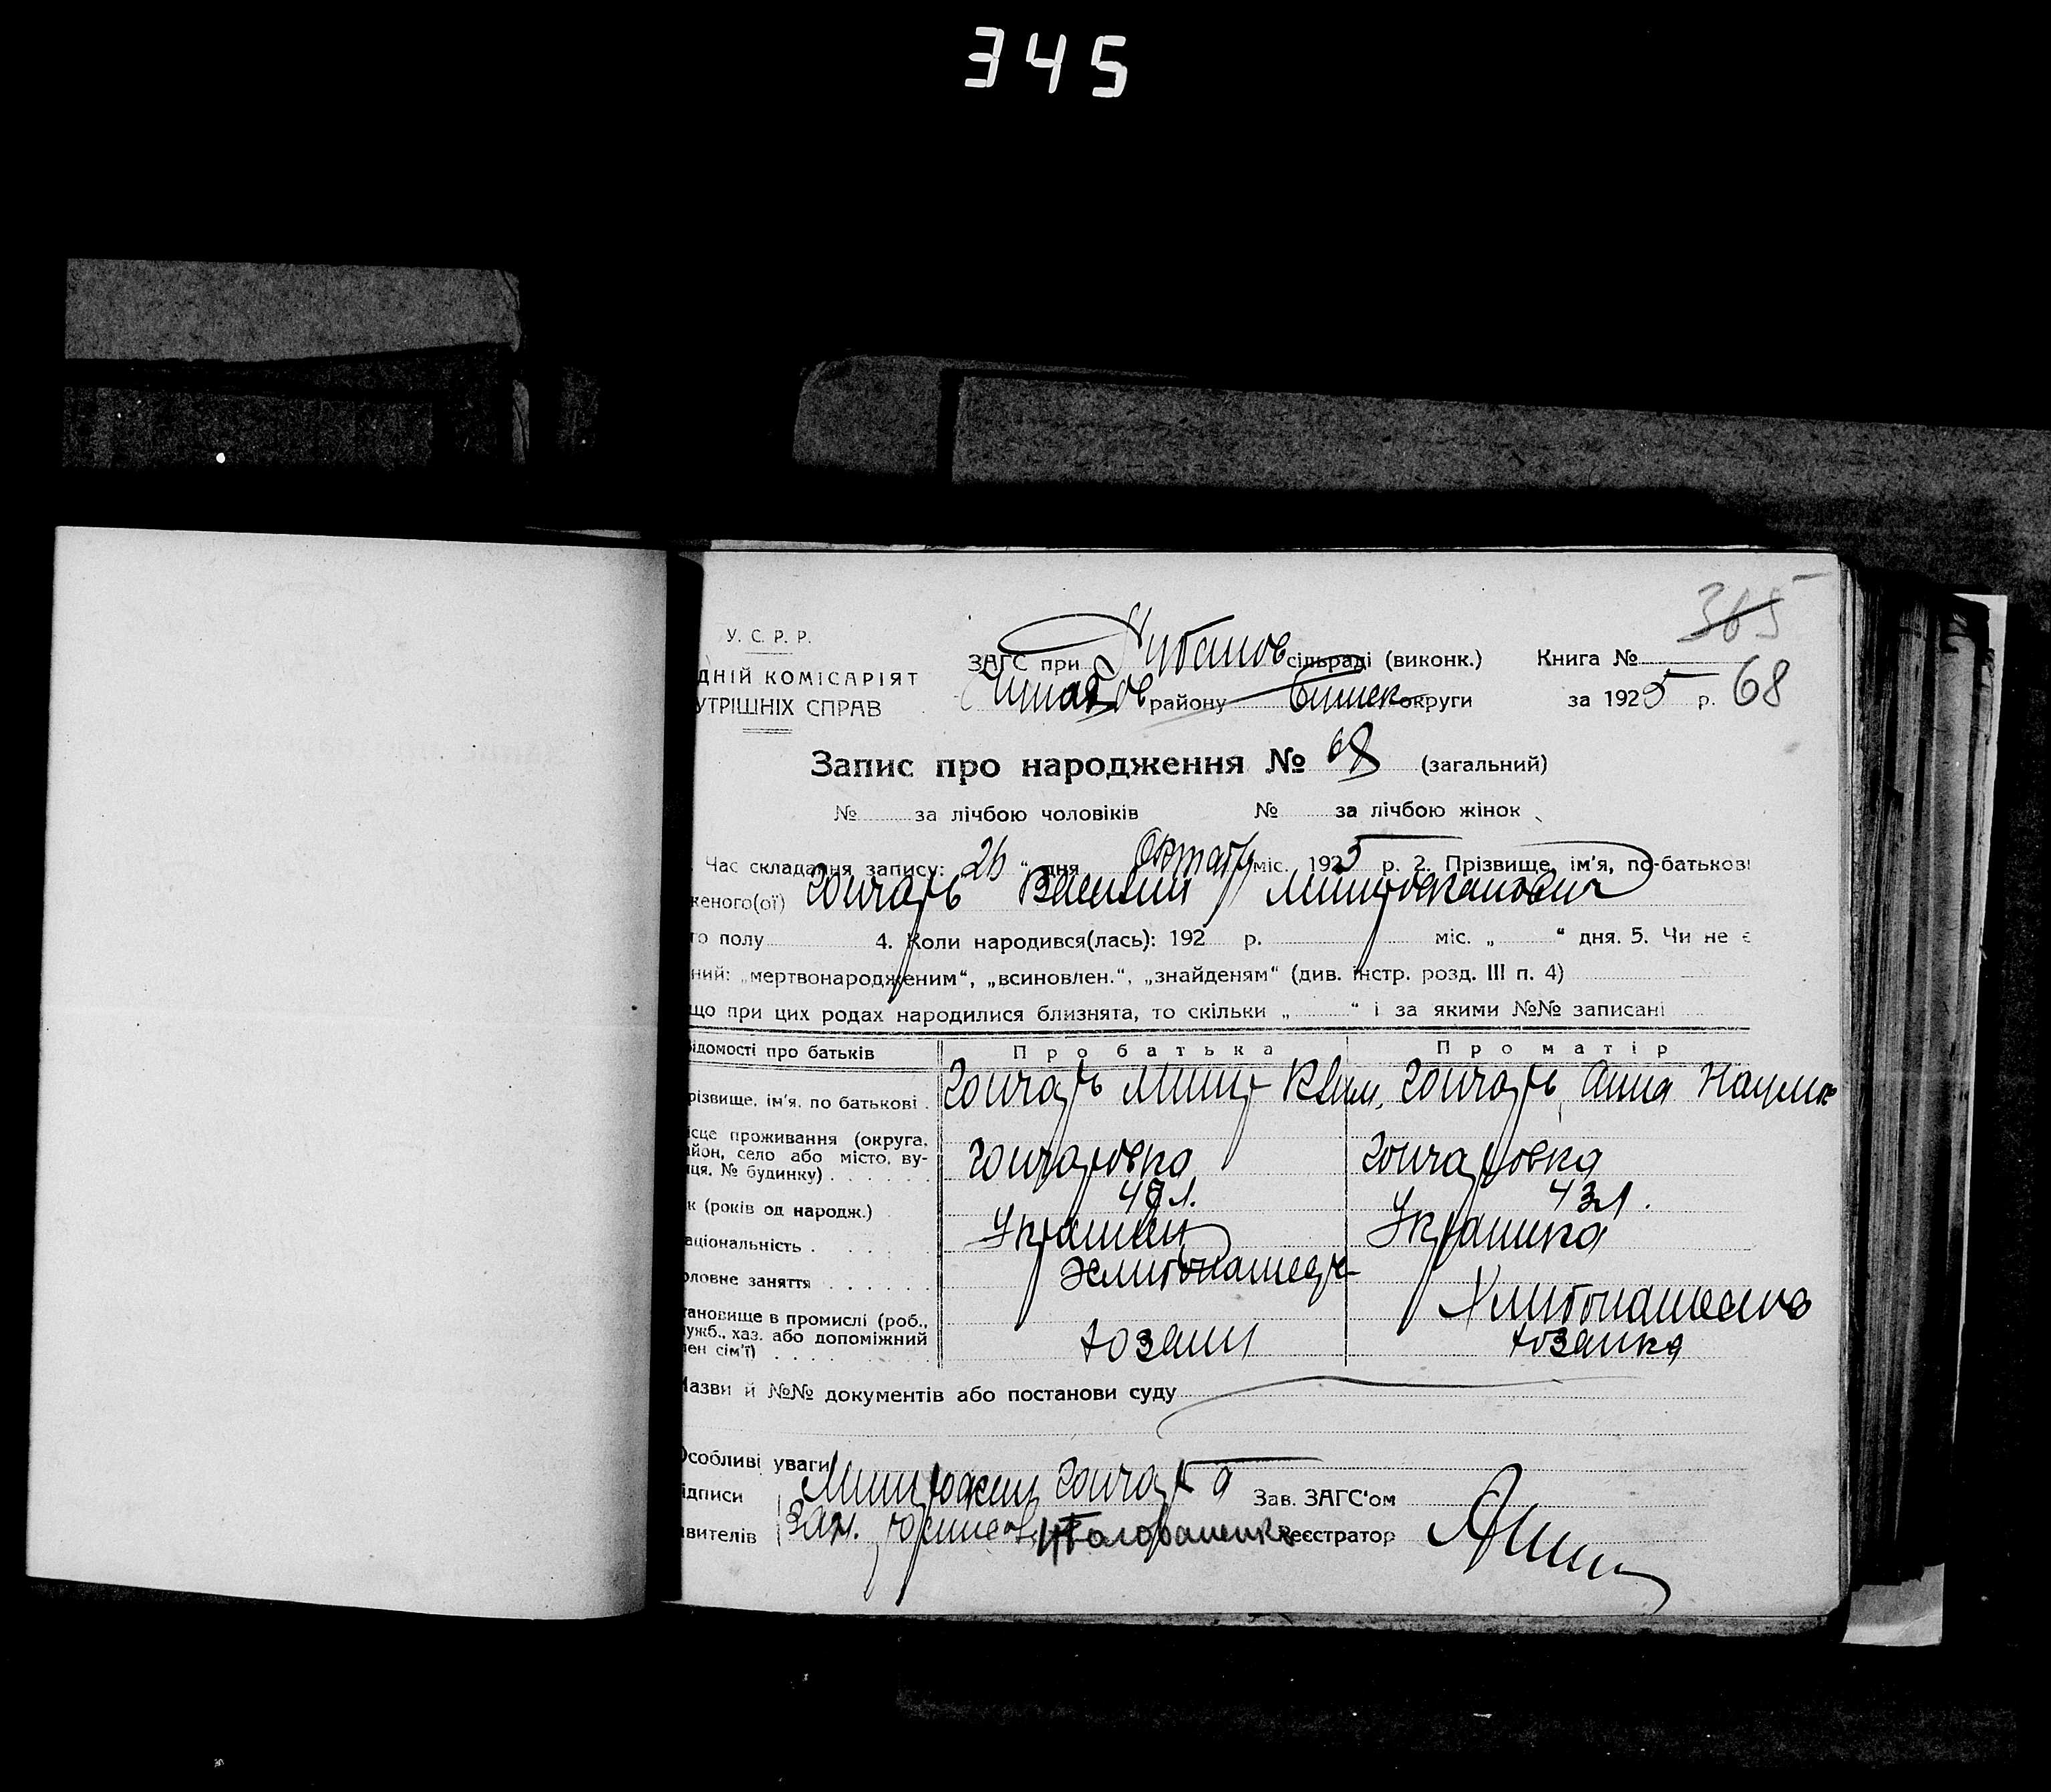 345
365
У. С. Р. Р.
ЗАГС при сільраді (виконк.) Книга №
ДНІЙ КОМІСАРІЯТ
району округи за 1925 р. 68
УТРІШНІХ СПРАВ
Запис про народження № 68 (загальний)
№ за лічбою чоловіків № за лічбою жінок
Час складання запису: 26 “ дня Октября міс. 1925 р. 2. Прізвище, ім’я, по-батькові
женого(ої) Гончарь Василий Митрофанович
го полу 4. Коли народився(лась): 192 р. міс. „ “ дня. 5. Чи не є
ний: „мертвонародженим“, „всиновлен.“, „знайденям“ (див. інстр. розд. III п. 4)
що при цих родах народилися близнята, то скільки „ “ і за якими №№ записані
ідомості про батьків Про батька Про матір
різвище, ім’я, по батькові . Гончарь Митр Гончарь Анна Наумов
ісце проживання (округа,
йон, село або місто, ву-
ця, № будинку) . . . . . . Гончаровка Гончаровка
к (років од народж.) 43 л.
аціональність . . . . . Украинец Украинка
оловне заняття . . . . . .
тановище в промислі (роб.,
ужб., хаз. або допоміжний
ен сім’ї) . . . . . . . . хозаин хозаика
Назви й №№ документів або постанови суду
Особливі уваги
ідписи Митрофан Гончарь Зав. ЗАГС’ом
явителів Реєстратор